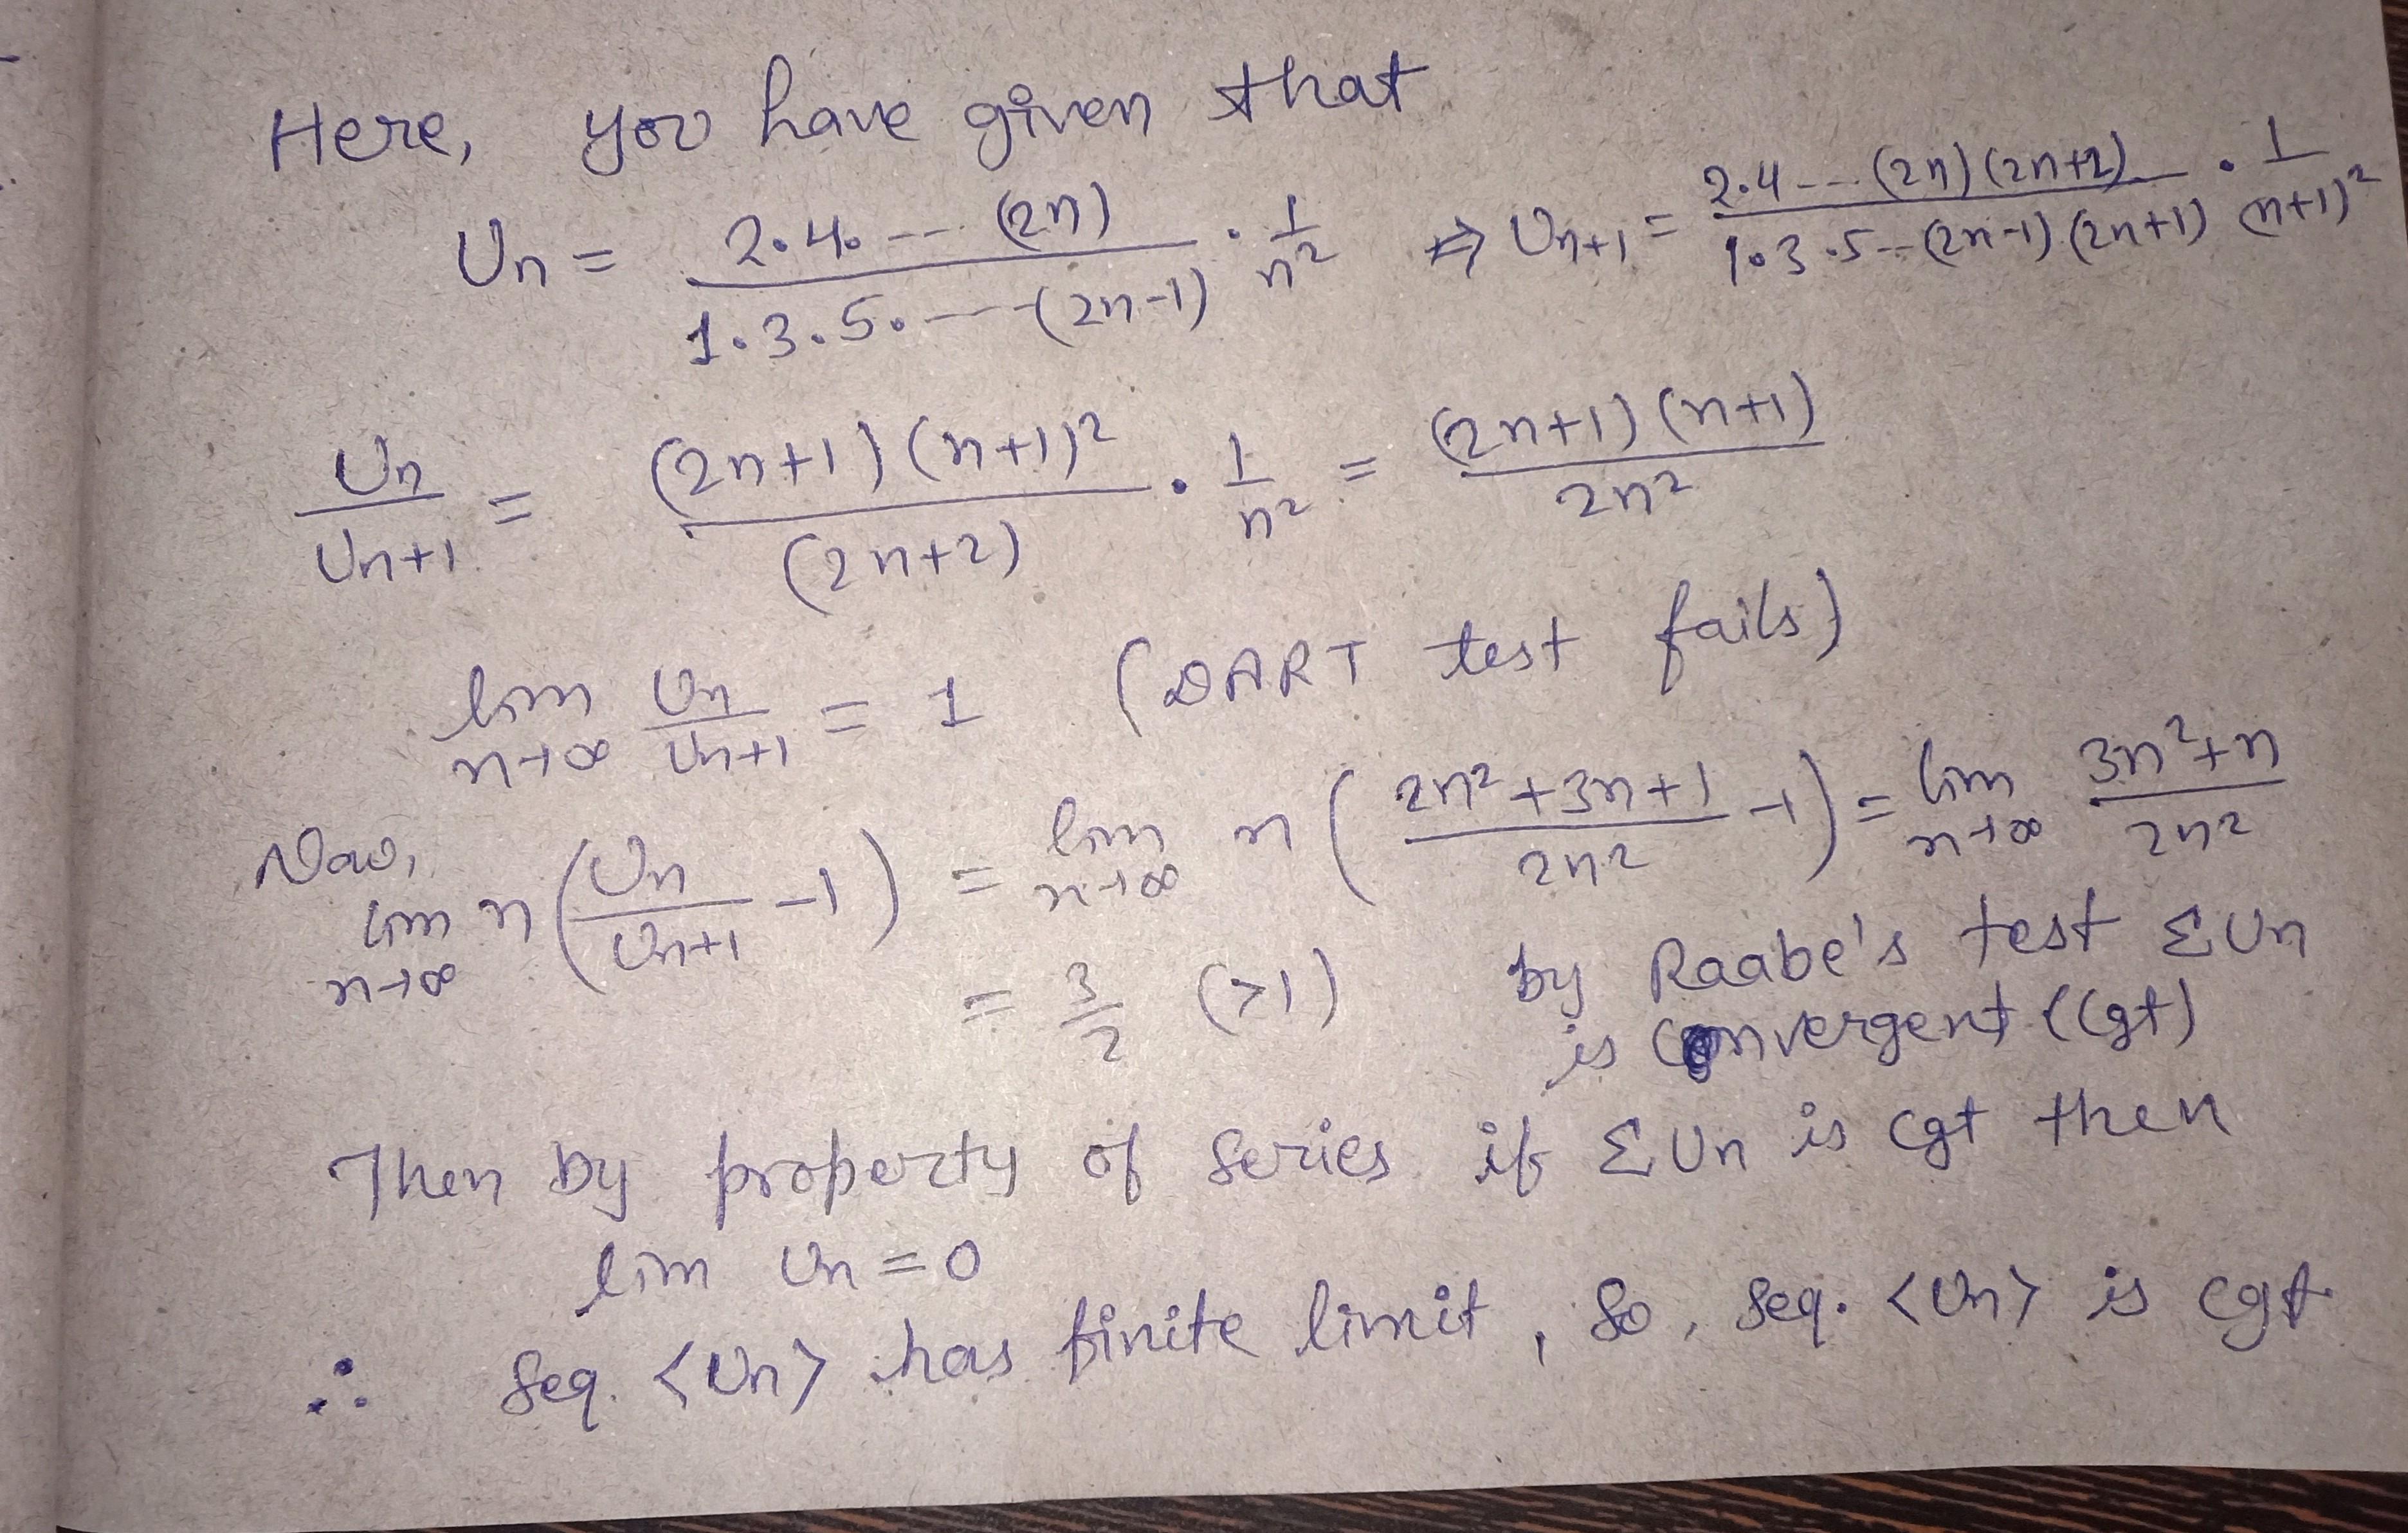 Here, you have given that
Un = 2.4. --- (2n) / 1.3.5. --- (2n-1) . 1/n² ⇒ Un+1 = 2.4 --- (2n)(2n+2) / 1.3.5 -- (2n-1).(2n+1) . 1/(n+1)²
Un/Un+1 = (2n+1)(n+1)² / (2n+2) . 1/n² = (2n+1)(n+1) / 2n²
lim n→∞ Un/Un+1 = 1 (DART test fails)
Now,
lim n→∞ n(Un/Un+1 - 1) = lim n→∞ n(2n²+3n+1 / 2n² - 1) = lim n→∞ 3n²+n / 2n²
= 3/2 (>1) by Raabe's test ΣUn
is convergent (Cgt)
Then by property of series if ΣUn is cgt then
lim Un = 0
∴ seq. <Un> has finite limit, so, seq. <Un> is cgt.